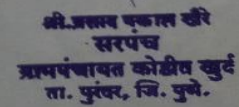 श्री. प्रसाद एकनाथ खैरे
सरपंच
ग्रामपंचायत कोडीत खुर्द
ता. पुरंदर, जि. पुणे.